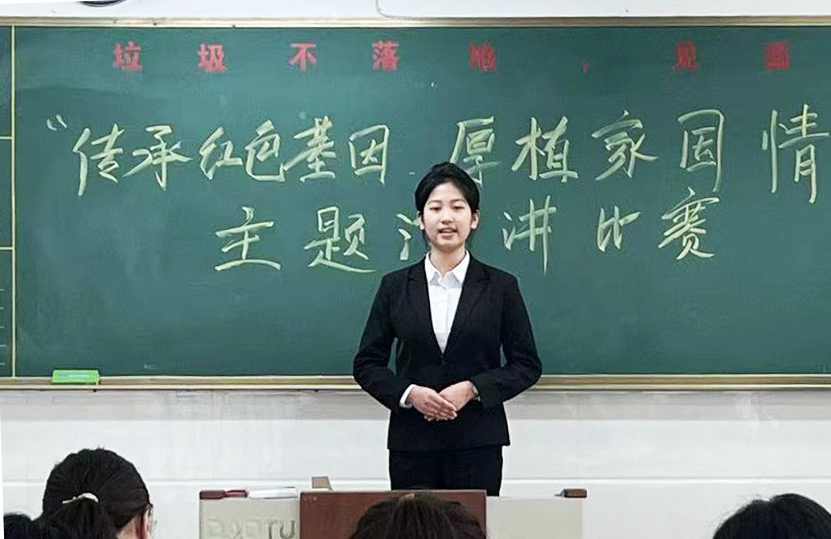 垃圾不落地，见面
“传承红色基因 厚植家国情
主题演讲比赛